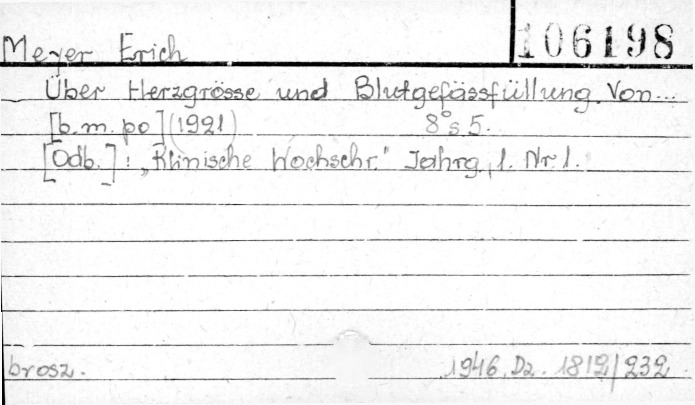 106198
Meyer Erich
Über Herzgrösse und Blutgefässfüllung. Von...
[b.m. po] (1921) 8° s 5.
[Odb.]: „Klinische Wochschr." Jahrg. 1. Nr 1.
brosz. 1946. Dz. 1812/232